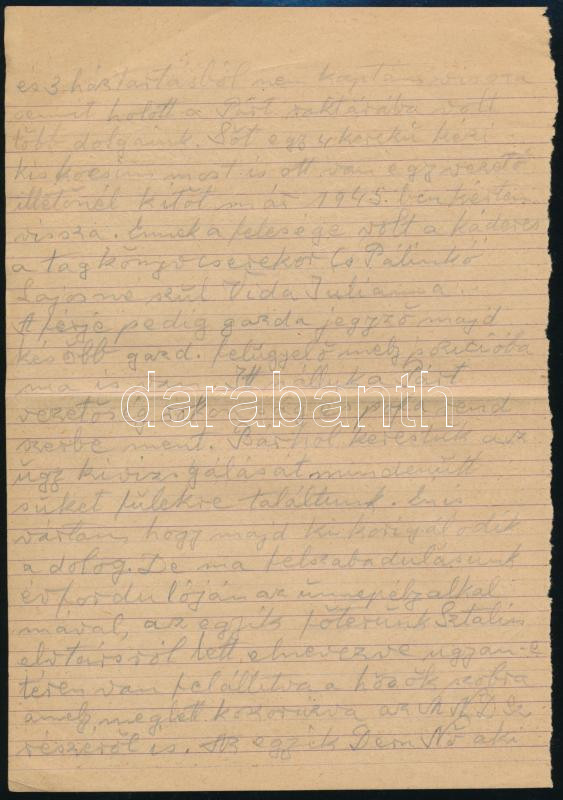 és 3 háztartásból nem kaptam vissza
semmit holott a Párt raktárába volt
több dolgaink. Sőt egy 4 kerekű kézi
kis kocsim most is ott van egy vezető
illetőnél kitől már 1945.ben kértem
vissza. Ennek a felesége volt a káderes
a tagkönyvcserekor (s Pálinkó
Lajosné szül Vida Julianna.
A férje pedig gazda jegyző majd
később gazd. felügyelő mely pozicióba
ma is Itt a Párt
vezetőség
szerbe ment. Bárhol kerestük az
ügy kivizsgálását mindenütt
süket fülekre találtunk. Én is
vártam hogy majd kikorigálodik
a dolog. De ma felszabadulásunk
évfordulóján az ünnepély alkal
mával, az egyik főterünk Sztalin
elvtársról lett elnevezve ugyan e
téren van felállitva a hősök szobra
amely meglett koszorúzva az M.N.D.Sz
részéről is. Az egyik Dem Nő aki
darabanth